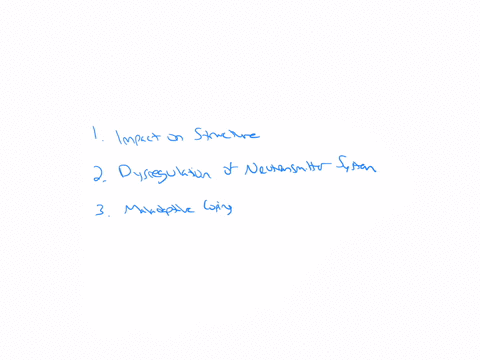 1. Impact on Structure
2. Dysregulation of Neurotransmitter System
3. Maladaptive Coping